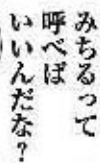 みちるって
呼べば
いいんだな？